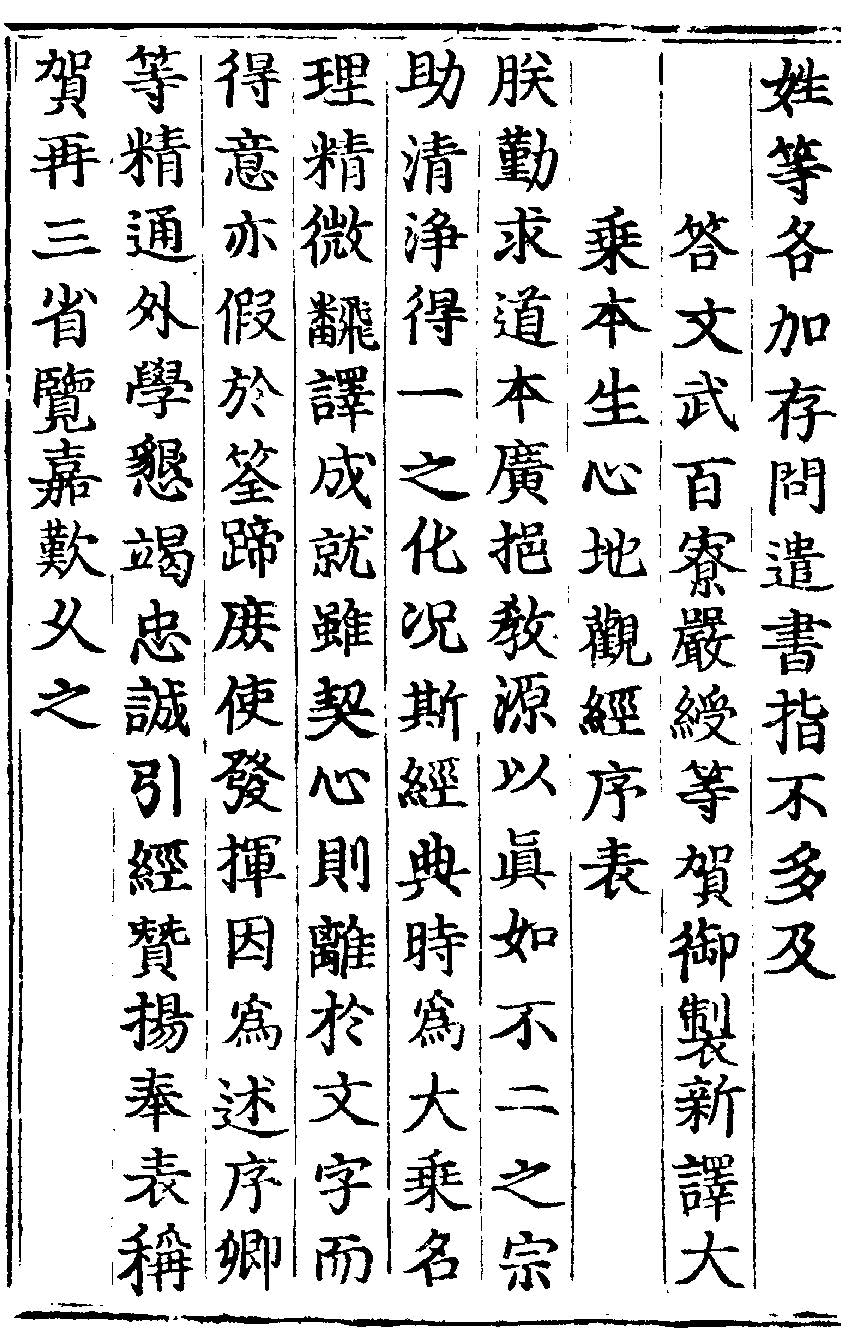 姓等各加存問遣書指不多及
答文武百寮嚴綬等賀御製新譯大
乗本生心地觀經序表
朕勤求道本廣挹教源以眞如不二之宗
助清淨得一之化况斯經典時爲大乗名
理精微飜譯成就雖契心則離於文字而
得意亦假於筌蹄庶使發揮因爲述序卿
等精通外學懇竭忠誠引經贊揚奉表稱
賀再三省覽嘉歎乆之